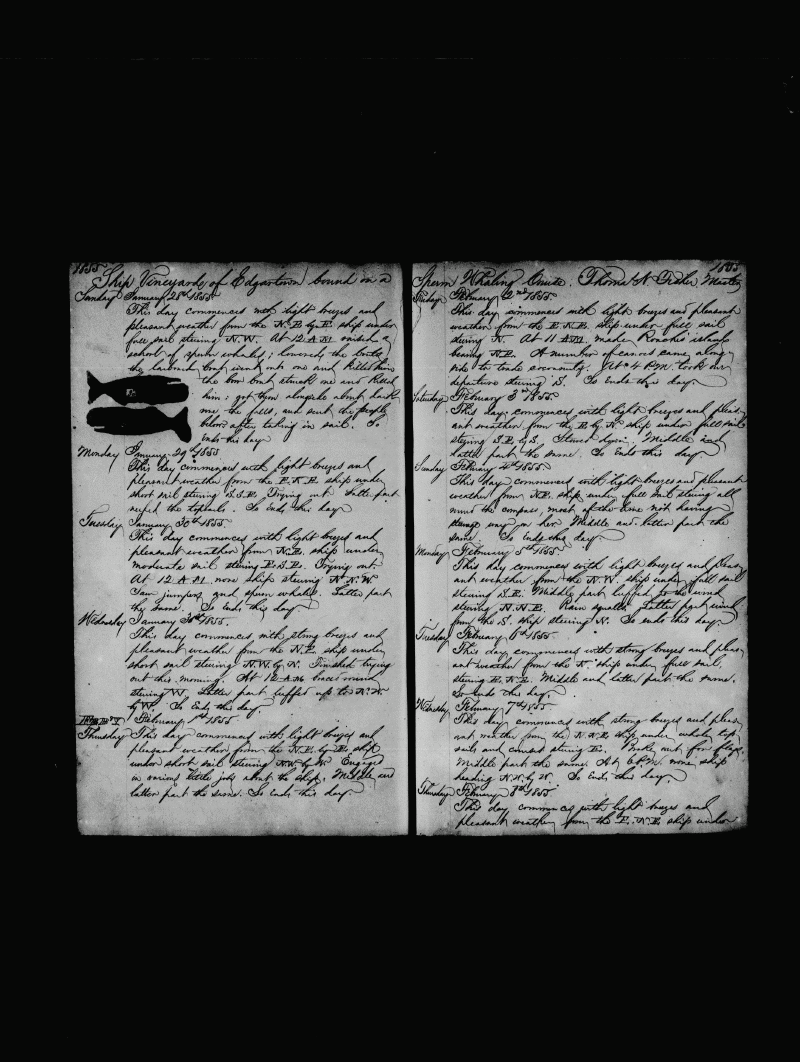 1855
Ship Vineyard of Edgartown bound on a
Sunday January 28th 1855.
This day commences with light breezes and
pleasant weather from the N.E. by E. ship under
full sail steering N.W. At 12 A.M. raised a
school of sperm whales; lowered the boats
the larboard boat went out one and killed him
the bow boat struck one and killed
him; got them alongside about dark
the falls, and sent the people
below after taking in sail. So
ends this day
Monday January 29th 1855
This day commences with light breezes and
pleasant weather from the E.N.E. ship under
short sail steering S.S.E. Trying out. Latter part
reefed the topsails. So ends this day
Tuesday January 30th 1855.
This day commences with light breezes and
pleasant weather from N.E. ship under
moderate sail steering E.S.E. Trying out
At 12 A.M. wore ship steering N.N.W.
Saw jumpers and sperm whales. Latter part
the same. So ends this day
Wednesday January 31st 1855.
This day commences with strong breezes and
pleasant weather from the N.E. ship under
short sail steering N.W. by N. Finished trying
out this morning. At 12 A.M. braces
steering W. Latter part luffed up to N.W.
by W. So ends this day.
Thursday February 1st 1855
This day commences with light breezes and
pleasant weather from the N.E. by E. ship
under short sail steering N.W. by W. Engaged
in various little jobs about the ship. Middle and
latter part the same. So ends this day
1855
Sperm Whaling Cruise. Thomas N. Fisher, Master
Friday February 2nd 1855.
This day commences with light breezes and pleasant
weather from the E.N.E. ship under full sail
steering N. At 11 A.M. made Roache's island
bearing N.E. A number of canoes came along-
side to trade cocoanuts. At 4 P.M. took our
departure steering S. So ends this day.
Saturday February 3rd 1855.
This day commences with light breezes and pleas-
ant weather from the E. by N. ship under full sail
steering S.E. by S. Stowed down. Middle and
latter part the same. So ends this day
Sunday February 4th 1855.
This day commences with light breezes and pleasant
weather from N.E. ship under full sail steering all
round the compass, most of the time not having
steerage way on her. Middle and latter part the
same. So ends this day
Monday February 5th 1855.
This day commences with light breezes and pleas-
ant weather from the N.W. ship under full sail
steering S.E. Middle part luffed to the wind
steering N.N.E. Rain squalls. Latter part wind
from the S. ship steering N. So ends this day.
Tuesday February 6th 1855.
This day commences with strong breezes and pleas-
ant weather from the N. ship under full sail,
steering E.N.E. Middle and latter part the same.
So ends this day.
Wednesday February 7th 1855.
This day commences with strong breezes and pleas-
ant weather from the N.N.E. ship under whole top-
sails and courses steering E.
Middle part the same. At 6 P.M. wore ship
heading N.W. by N. So ends this day.
Thursday February 8th 1855
This day commences with light breezes and
pleasant weather from the E.N.E. ship under